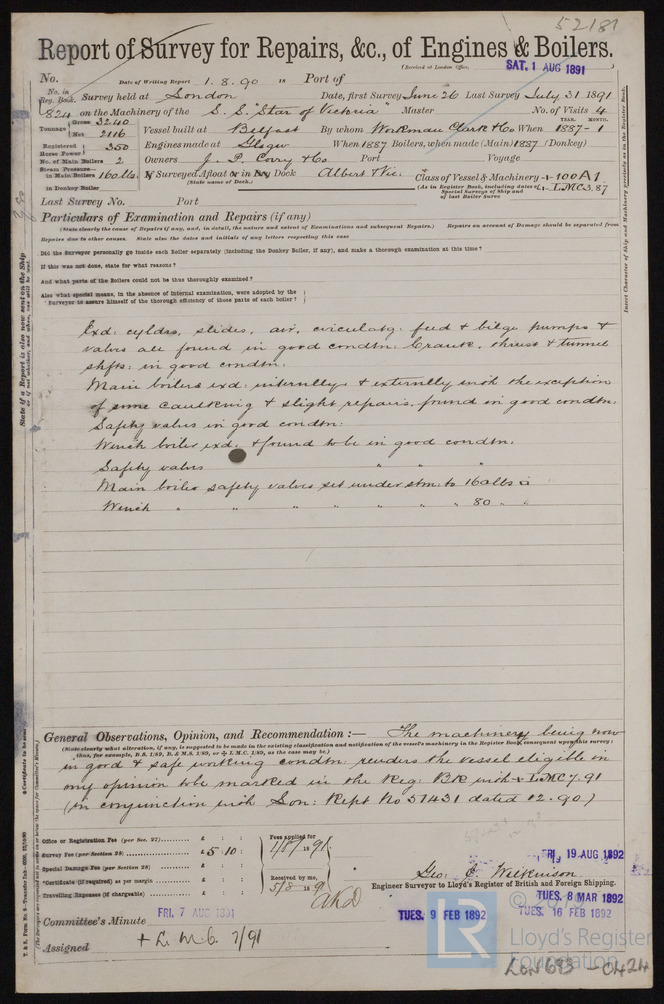 52181
Report of Survey for Repairs, &c., of Engines & Boilers.
(Received at London Office,
SAT. 1 AUG 1891
No. Date of Writing Report 1.8.90 18 Port of
No. in Reg. Book. Survey held at London Date, first Survey June 26 Last Survey July 31 1891
824 on the Machinery of the S.S. "Star of Victoria" Master No. of Visits 4
Tonnage Gross 3240 Net 2116 Vessel built at Belfast By whom Workman Clark & Co When 1887-1 YEAR. MONTH.
Registered Horse Power 350 Engines made at Glsgw When 1887 Boilers, when made (Main) 1887 (Donkey)
No. of Main Boilers 2 Owners J. P. Corry & Co Port Voyage
Steam Pressure in Main Boilers 160 lbs. If Surveyed Afloat or in Dry Dock Albert & Vic. Class of Vessel & Machinery + 100A1
(State name of Dock.) (As in Register Book, including dates of Special Surveys of Ship and of last Boiler Surve + LMC 3.87
in Donkey Boiler
Last Survey No. Port
Particulars of Examination and Repairs (if any)
(State clearly the cause of Repairs if any, and, in detail, the nature and extent of Examinations and subsequent Repairs.) Repairs on account of Damage should be separated from
Repairs due to other causes. State also the dates and initials of any letters respecting this case
Did the Surveyor personally go inside each Boiler separately (including the Donkey Boiler, if any), and make a thorough examination at this time?
If this was not done, state for what reasons?
And what parts of the Boilers could not be thus thoroughly examined?
Also what special means, in the absence of internal examination, were adopted by the
Surveyor to assure himself of the thorough efficiency of those parts of each boiler?
Exd: cyldrs, slides, air, circulatg: feed & bilge pumps &
valves all found in good condtn: Crank, thrust & tunnel
shfts: in good condtn:
Main boilers exd: internlly & externlly with the exception
of some caulking & slight repairs, found in good condtn.
Safety valves in good condtn:
Winch boiler exd. & found to be in good condtn.
Safety valves " " "
Main boiler safety valves set under stm: to 160 lbs □"
Winch " " " " " " " 80 " "
General Observations, Opinion, and Recommendation :— The machinery being now
(State clearly what alteration, if any, is suggested to be made in the existing classification and notification of the vessel's machinery in the Register Book, consequent upon this survey:
thus, for example, B.S. 1/89, B. & M.S. 1/89, or + L.M.C. 1/89, as the case may be.)
in good & safe working condtn: renders the vessel eligible in
my opinion to be marked in the Reg: Bk with + LMC 7.91
(in conjunction with Lon: Rept No 51431 dated 12.90)
Office or Registration Fee (per Sec. 27) £ : :
Survey Fee (per Section 28) £ 5 : 10 :
Special Damage Fee (per Section 28) £ : :
*Certificate (if required) as per margin £ : :
Travelling Expenses (if chargeable) £ : :
Fees applied for
1/8/ 1891
Received by me,
5/8 189
FRI. 19 AUG 1892
Geo: E. Wilkinson
Engineer Surveyor to Lloyd's Register of British and Foreign Shipping.
TUES. 8 MAR 1892
Committee's Minute FRI. 7 AUG 1891 TUES. 9 FEB 1892 TUES. 16 FEB 1892
Assigned + L.M.C. 7/91
LR Lloyd's Register Foundation
LON 693 - 0424
State if a Report is also now sent on the Ship
Insert Character of Ship and Machinery precisely as in the Register Book.